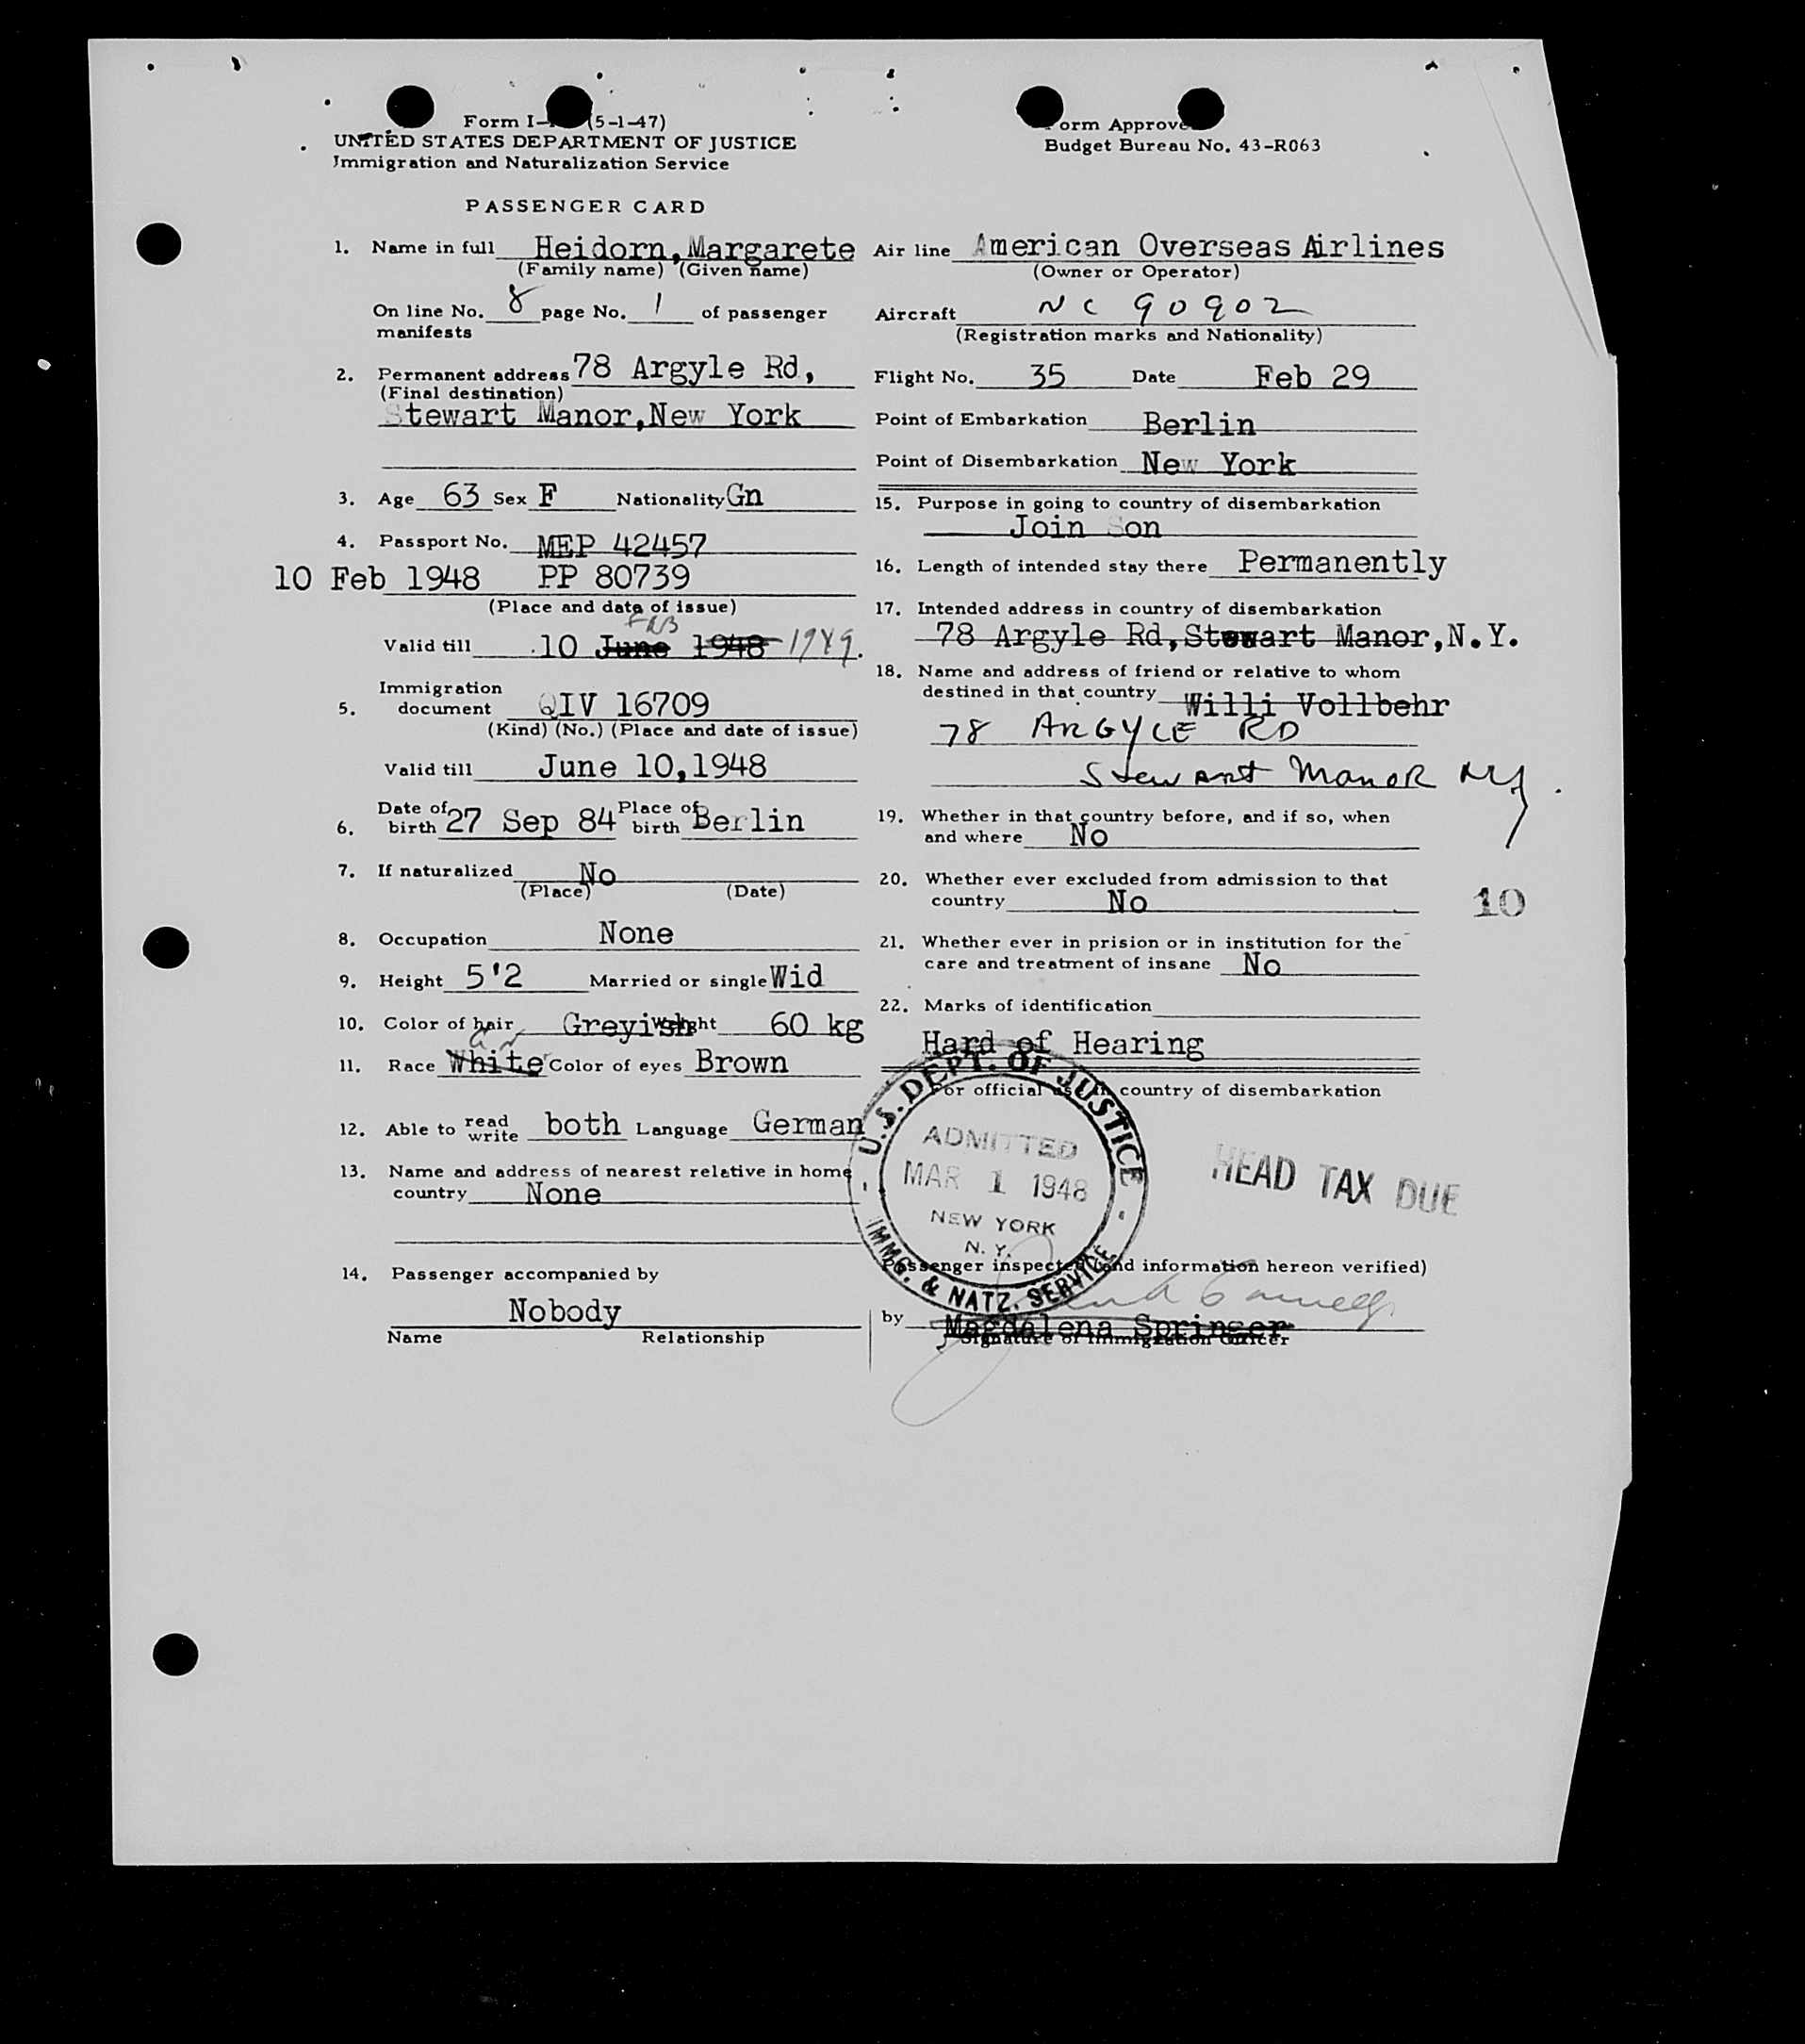 Form I- (5-1-47)
UNITED STATES DEPARTMENT OF JUSTICE
Immigration and Naturalization Service
PASSENGER CARD
1. Name in full Heidorn, Margarete
(Family name) (Given name)
On line No. 8 page No. 1 of passenger
manifests
2. Permanent address 78 Argyle Rd,
(Final destination)
Stewart Manor, New York
3. Age 63 Sex F Nationality Gn
4. Passport No. MEP 42457
10 Feb 1948 PP 80739
(Place and date of issue)
FEB
Valid till 10 June 1948 1949.
5. Immigration document QIV 16709
(Kind) (No.) (Place and date of issue)
Valid till June 10, 1948
6. Date of birth 27 Sep 84 Place of birth Berlin
7. If naturalized No
(Place) (Date)
8. Occupation None
9. Height 5'2 Married or single Wid
10. Color of hair Greyish Weight 60 kg
11. Race White Color of eyes Brown
12. Able to read write both Language German
13. Name and address of nearest relative in home
country None
14. Passenger accompanied by
Nobody
Name Relationship
Form Approved
Budget Bureau No. 43-R063
Air line American Overseas Airlines
(Owner or Operator)
Aircraft NC 90902
(Registration marks and Nationality)
Flight No. 35 Date Feb 29
Point of Embarkation Berlin
Point of Disembarkation New York
15. Purpose in going to country of disembarkation
Join Son
16. Length of intended stay there Permanently
17. Intended address in country of disembarkation
78 Argyle Rd, Stewart Manor, N.Y.
18. Name and address of friend or relative to whom
destined in that country Willi Vollbehr
78 ARGYLE RD
Stewart Manor NY.
19. Whether in that country before, and if so, when
and where No
20. Whether ever excluded from admission to that
country No
10
21. Whether ever in prision or in institution for the
care and treatment of insane No
22. Marks of identification
Hard of Hearing
For official use in country of disembarkation
U.S. DEPT. OF JUSTICE
ADMITTED
MAR 1 1948
NEW YORK
N. Y.
IMMG. & NATZ. SERVICE
HEAD TAX DUE
Passenger inspected (and information hereon verified)
by Magdalena Springer
Signature of Immigration Officer